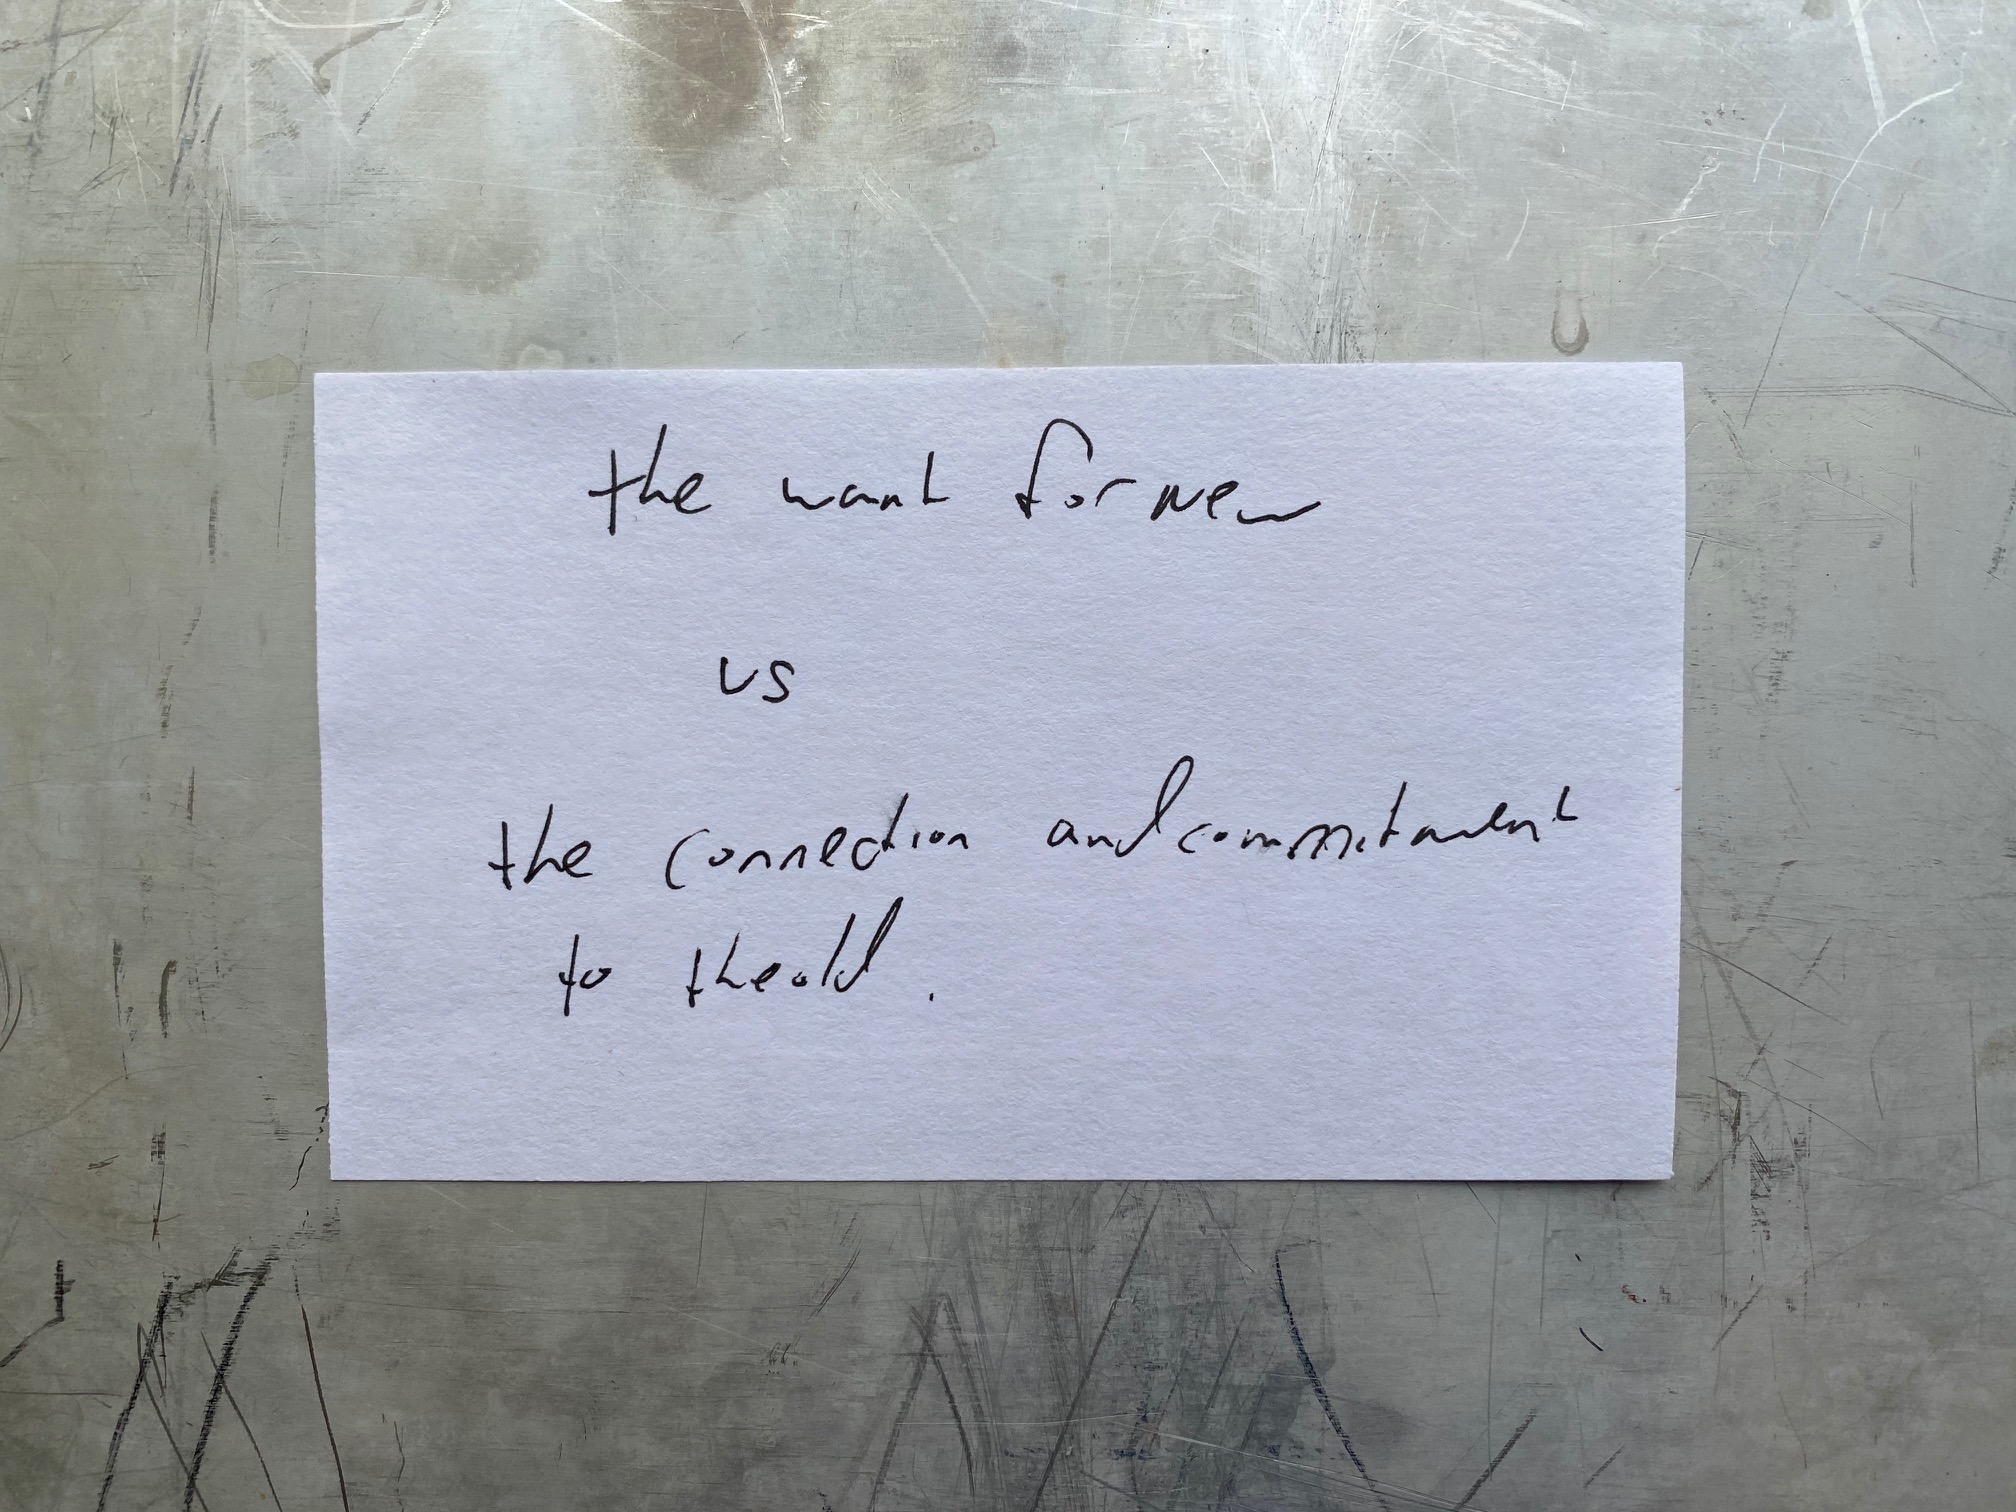 the want for new
vs
the connection and commitment
to the old.